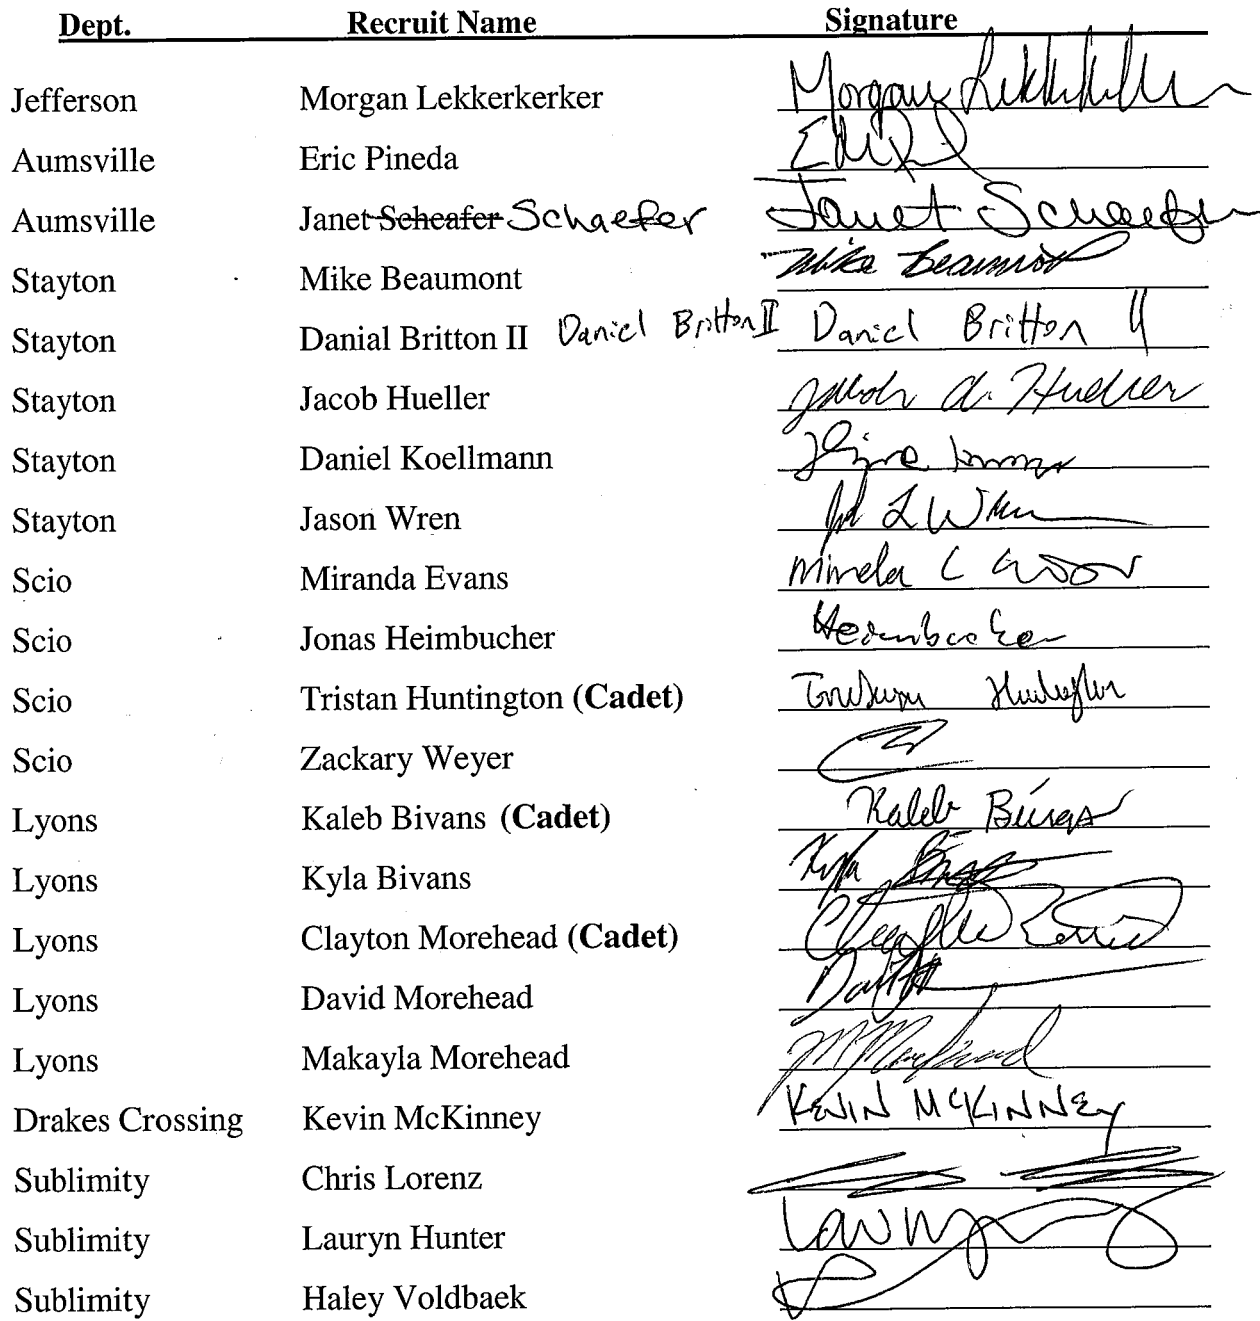 Dept. Recruit Name Signature
Jefferson Morgan Lekkerkerker Morgan
Aumsville Eric Pineda
Aumsville Janet Scheafer Schaefer Janet Schaefer
Stayton Mike Beaumont Mike Beaumont
Stayton Danial Britton II Daniel Britton II Daniel Britton II
Stayton Jacob Hueller Jacob A. Hueller
Stayton Daniel Koellmann
Stayton Jason Wren
Scio Miranda Evans
Scio Jonas Heimbucher
Scio Tristan Huntington (Cadet)
Scio Zackary Weyer
Lyons Kaleb Bivans (Cadet) Kaleb Bivans
Lyons Kyla Bivans Kyla
Lyons Clayton Morehead (Cadet)
Lyons David Morehead
Lyons Makayla Morehead
Drakes Crossing Kevin McKinney KEVIN MCKINNEY
Sublimity Chris Lorenz
Sublimity Lauryn Hunter
Sublimity Haley Voldbaek